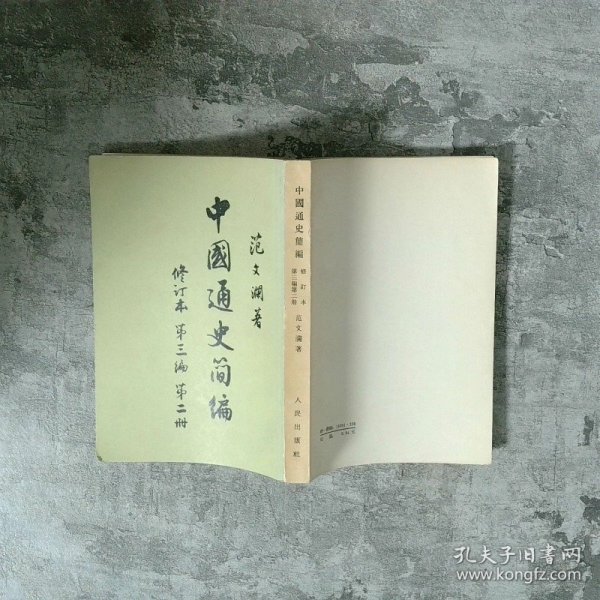 范文瀾著
中國通史简编
修订本 第三编 第二册
中國通史簡編
修訂本
第三編第二册
范文瀾著
人民出版社
孔夫子旧书网
www.kongfz.com